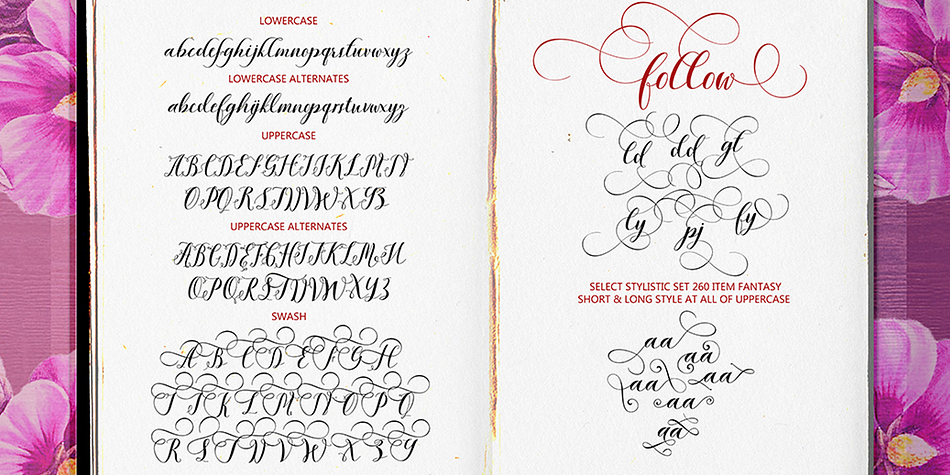 LOWERCASE
abcdefghijklmnopqrstuvwxyz
LOWERCASE ALTERNATES
abcdefghijklmnopqrstuvwxyz
UPPERCASE
ABCDEFGHIJKLMN
OPQRSTUVWXYZ
UPPERCASE ALTERNATES
ABCDEFGHIJKLMN
OPQRSTUVWXYZ
SWASH
A B C D E F G H
I J K L M N O P Q
R S T U V W X Y Z
follow
ld dd gl
ly pj fy
SELECT STYLISTIC SET 260 ITEM FANTASY
SHORT & LONG STYLE AT ALL OF UPPERCASE
aa
aa
aa aa
aa
aa